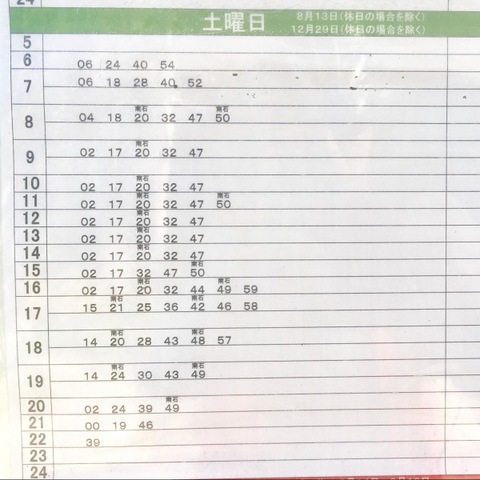 24
土曜日 8月13日(休日の場合を除く)
12月29日(休日の場合を除く)
5
6 06 24 40 54
7 06 18 28 40 52
南石 南石
8 04 18 20 32 47 50
南石
9 02 17 20 32 47
南石
10 02 17 20 32 47
南石 南石
11 02 17 20 32 47 50
南石
12 02 17 20 32 47
南石
13 02 17 20 32 47
南石
14 02 17 20 32 47
南石
15 02 17 32 47 50
南石 南石
16 02 17 20 32 44 49 59
南石 南石
17 15 21 25 36 42 46 58
南石 南石
18 14 20 28 43 48 57
南石 南石
19 14 24 30 43 49
南石
20 02 24 39 49
21 00 19 46
22 39
23
24